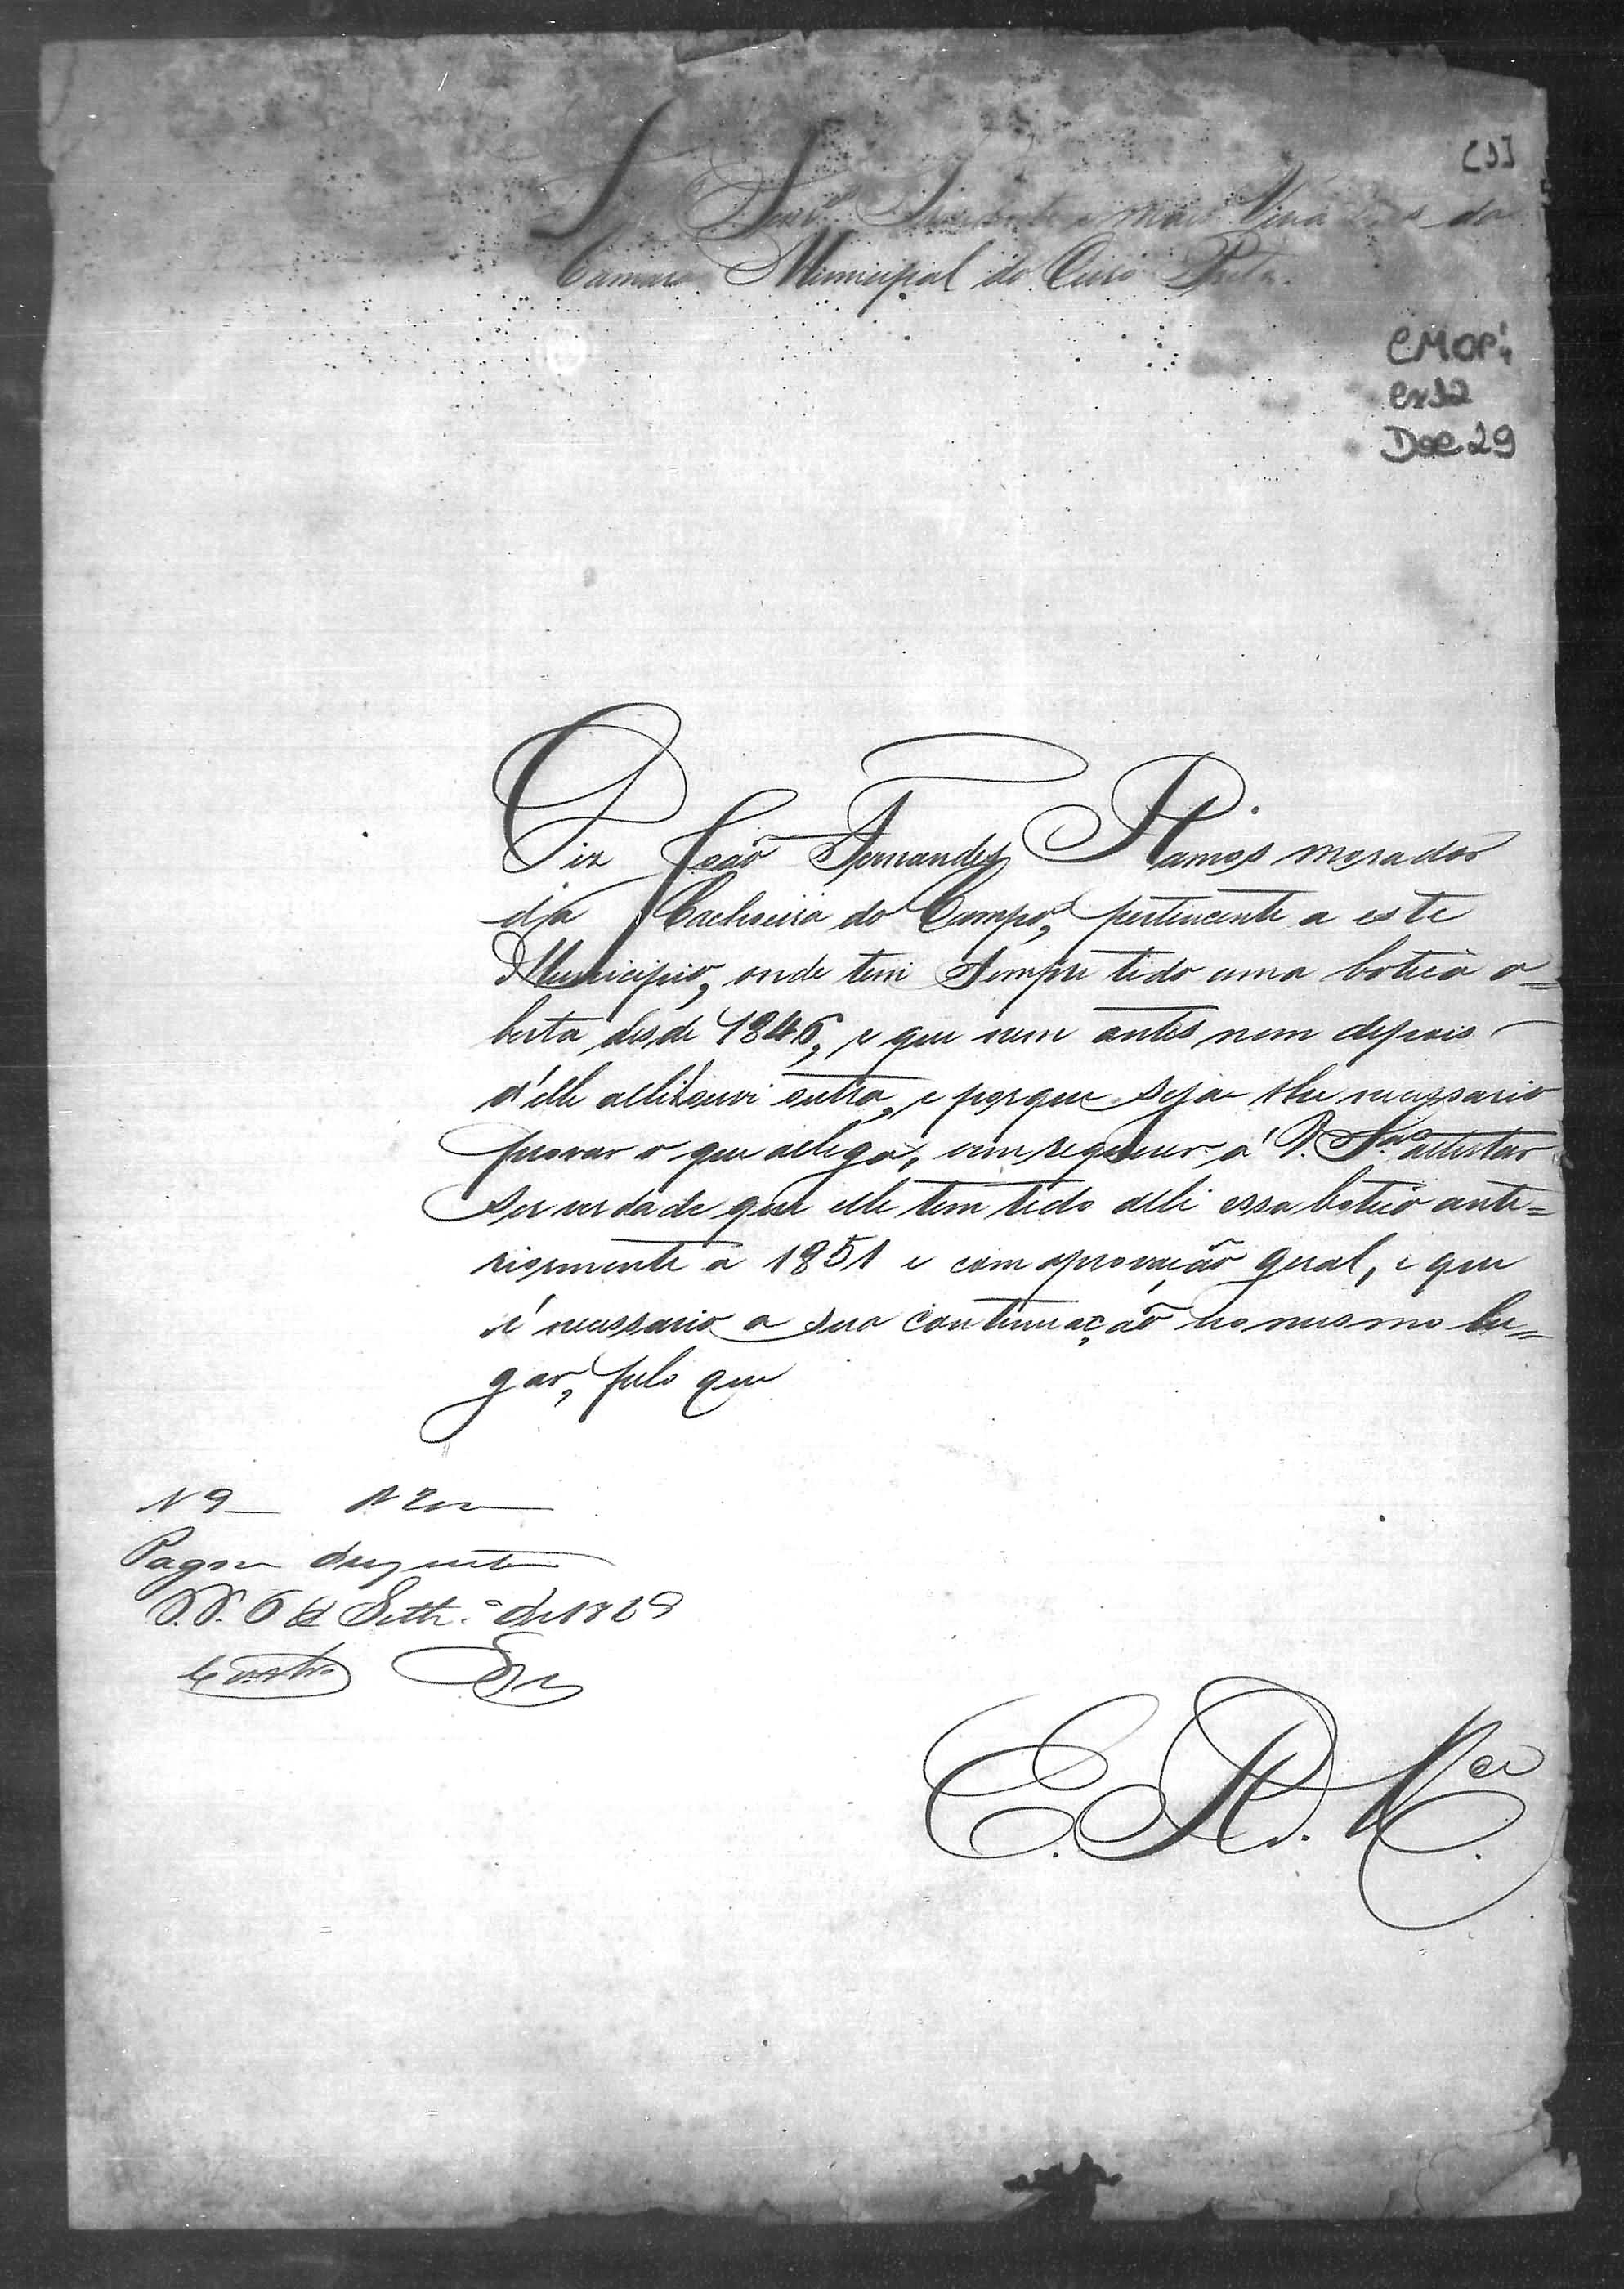 [1]
Senr.es Presidente e mais Vereadores da
Camara Municipal do Ouro Preto.
CMOP
cx 32
Doc 29
Diz João Fernandes Ramos morador
da Cachoeira do Campo, pertencente a este
Municipio, onde tem sempre tido uma botica a=
berta desde 1846, e que nem antes nem depois
d'elle alli houve outra, e porque seja lhe necessario
provar o que allega, vem requerer á V. S.as attestar
ser verdade que elle tem tido alli essa botica ante=
riormente a 1851 e com aprovação geral, e que
é necessario a sua continuação no mesmo lu=
gar, pelo que
N 9 200
Pagou duzentos
6 de Setbr.o de
Castro
E. R. M.ce